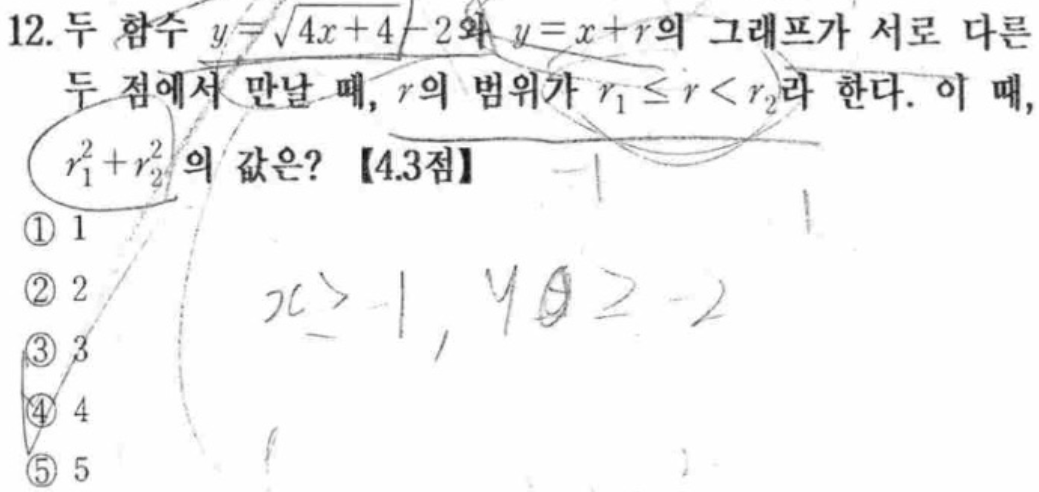 12. 두 함수 y=√(4x+4)-2와 y=x+r의 그래프가 서로 다른
두 점에서 만날 때, r의 범위가 r₁≤r<r₂라 한다. 이 때,
r₁²+r₂²의 값은? 【4.3점】
-1 1
① 1
② 2
x≥-1, y≥-2
③ 3
④ 4
⑤ 5